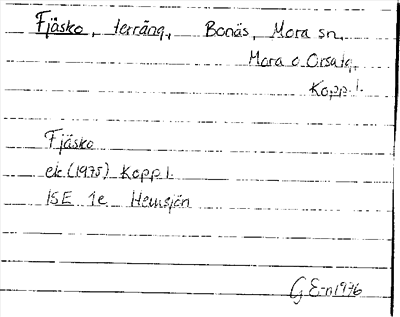 Fjäsko, terräng, Bonäs, Mora sn,
Mora o. Orsa tg,
Kopp. l.
Fjäsko
ek. (1975) Kopp. l.
15E 1e Hemsjön
G E-n 1976